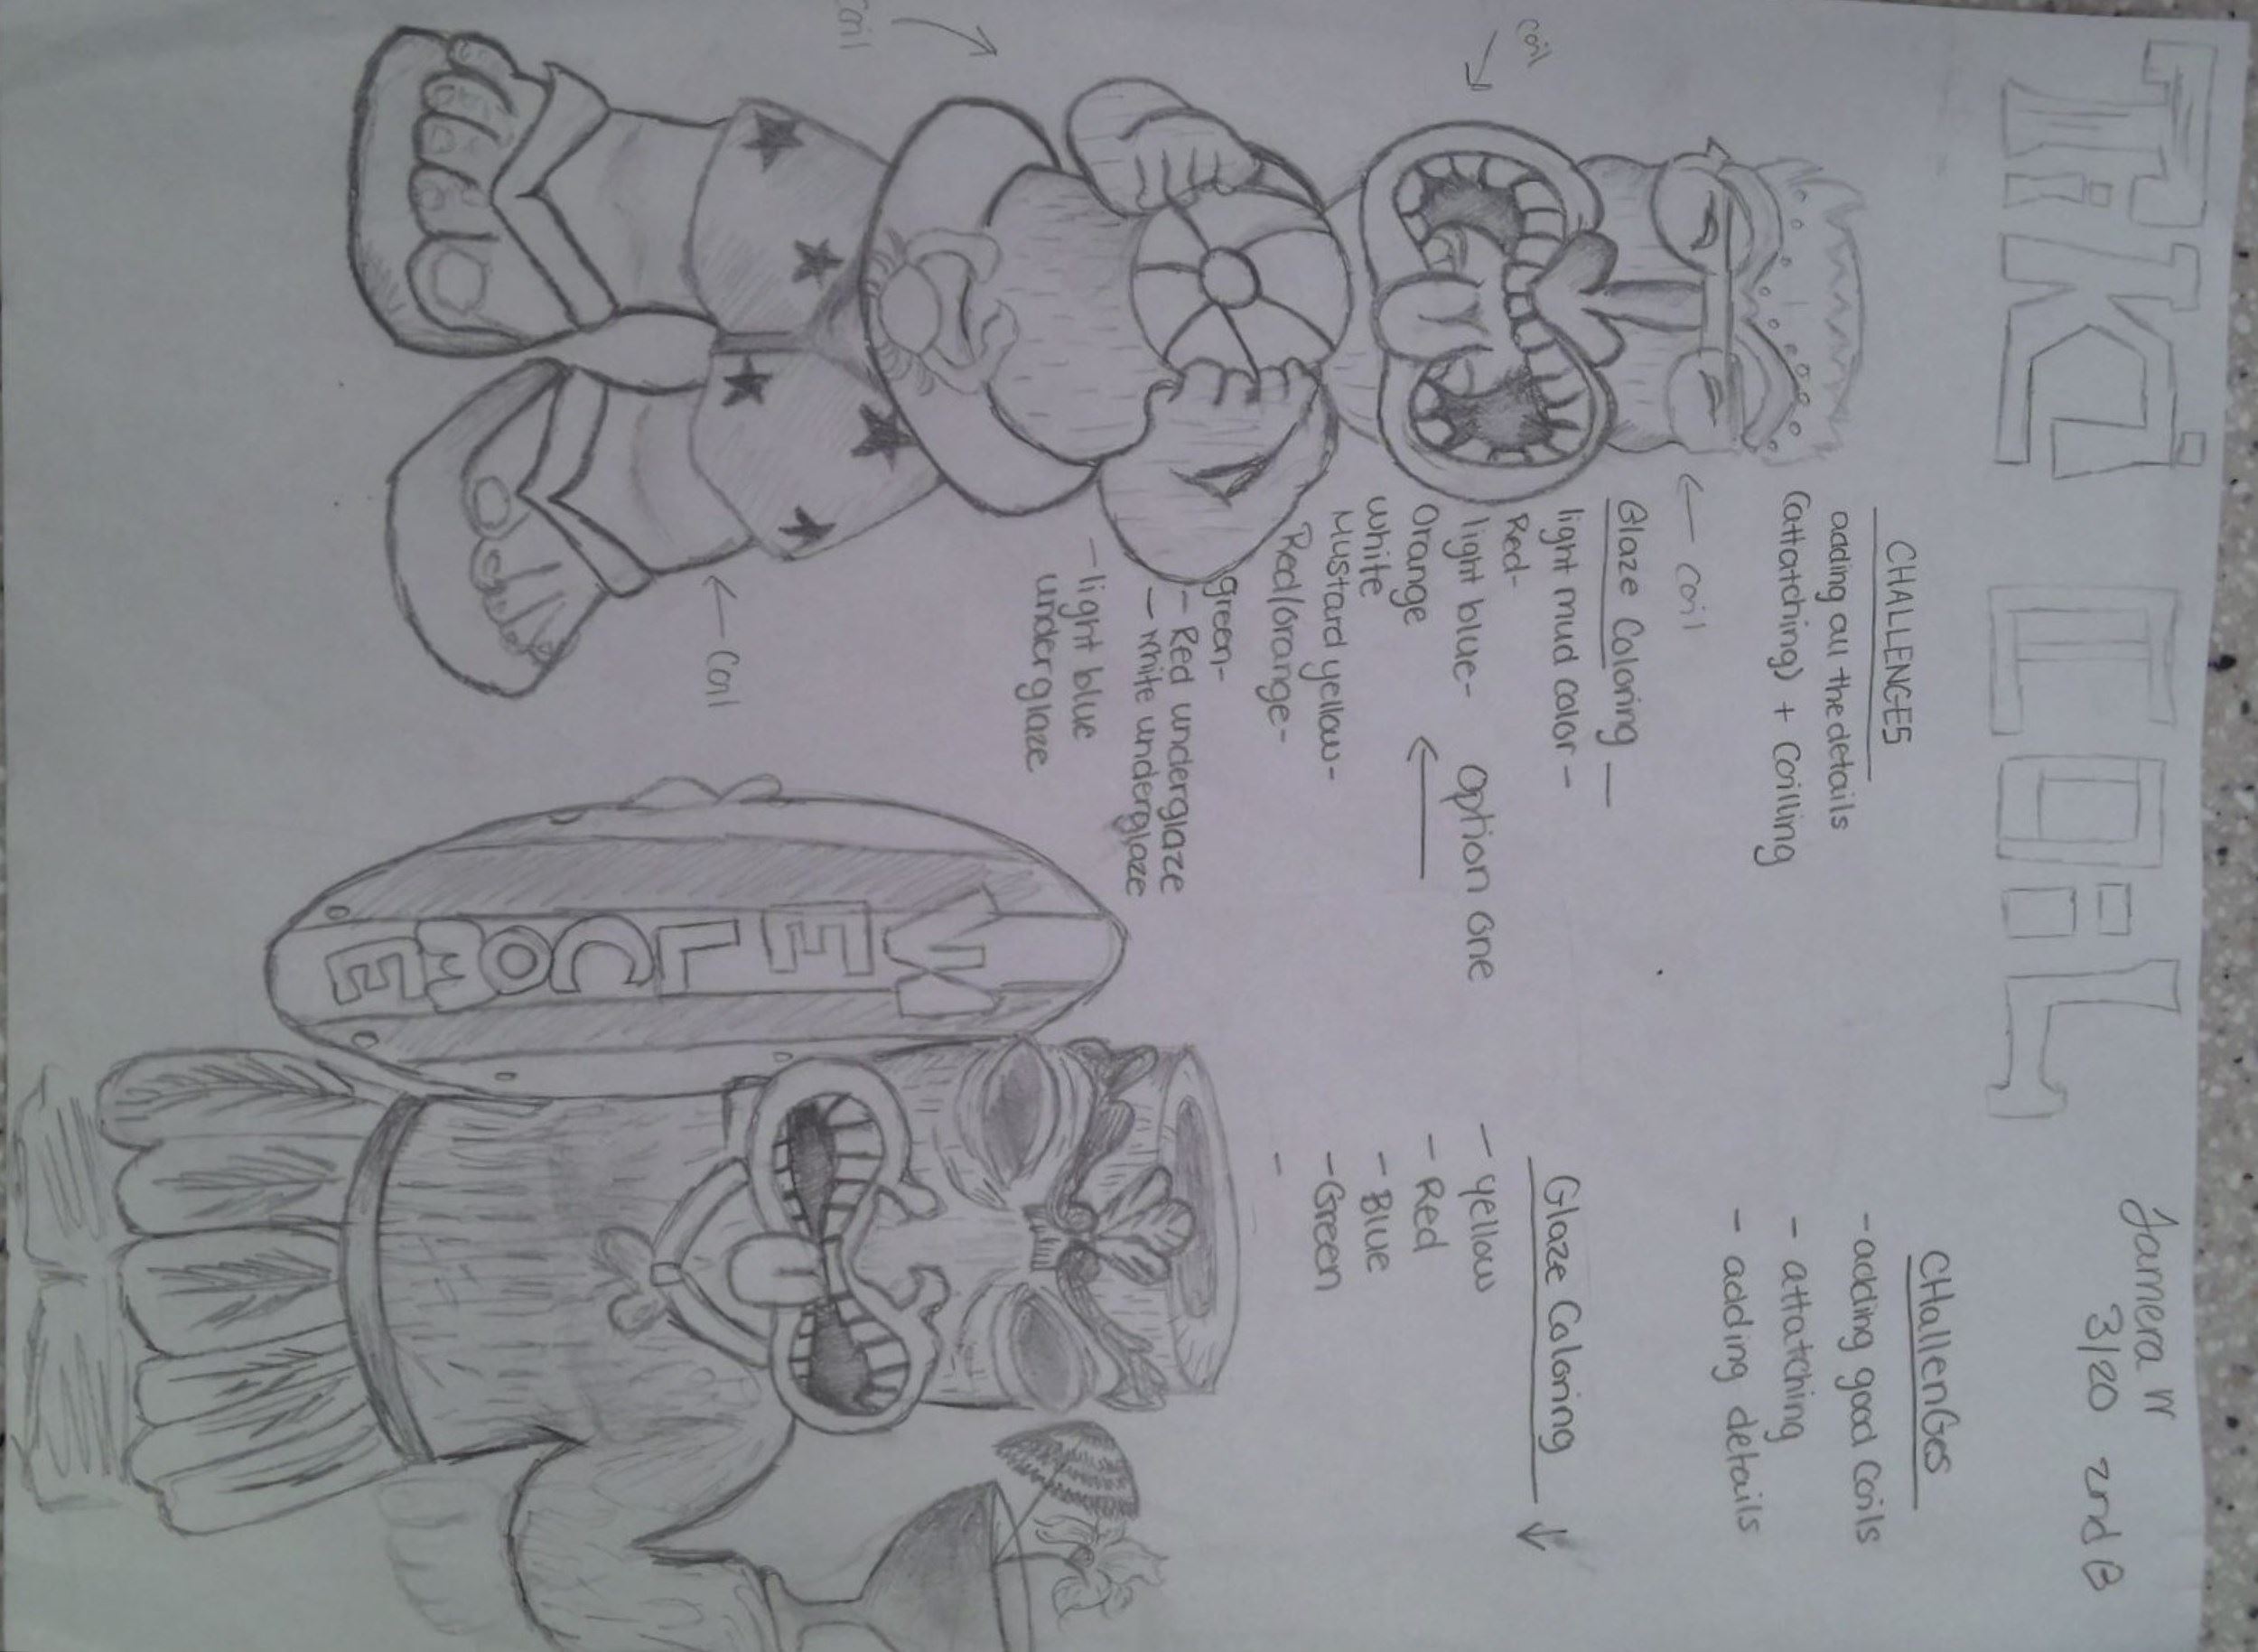 TiKi COiL
Jamera W
3/20 2nd B
CHALLENGES
adding all the details
(attatching) + Coilling
coil
← coil
Glaze Coloring —
light mud color -
Red-
light blue-
Orange
white
Mustard yellow-
Red/orange-
green-
- Red underglaze
- white underglaze
- light blue
underglaze
Option one
coil
← Coil
WELCOME
CHallenGes
-adding good Coils
- attatching
- adding details
Glaze Coloring
- yellow
- Red
- Blue
-Green
-